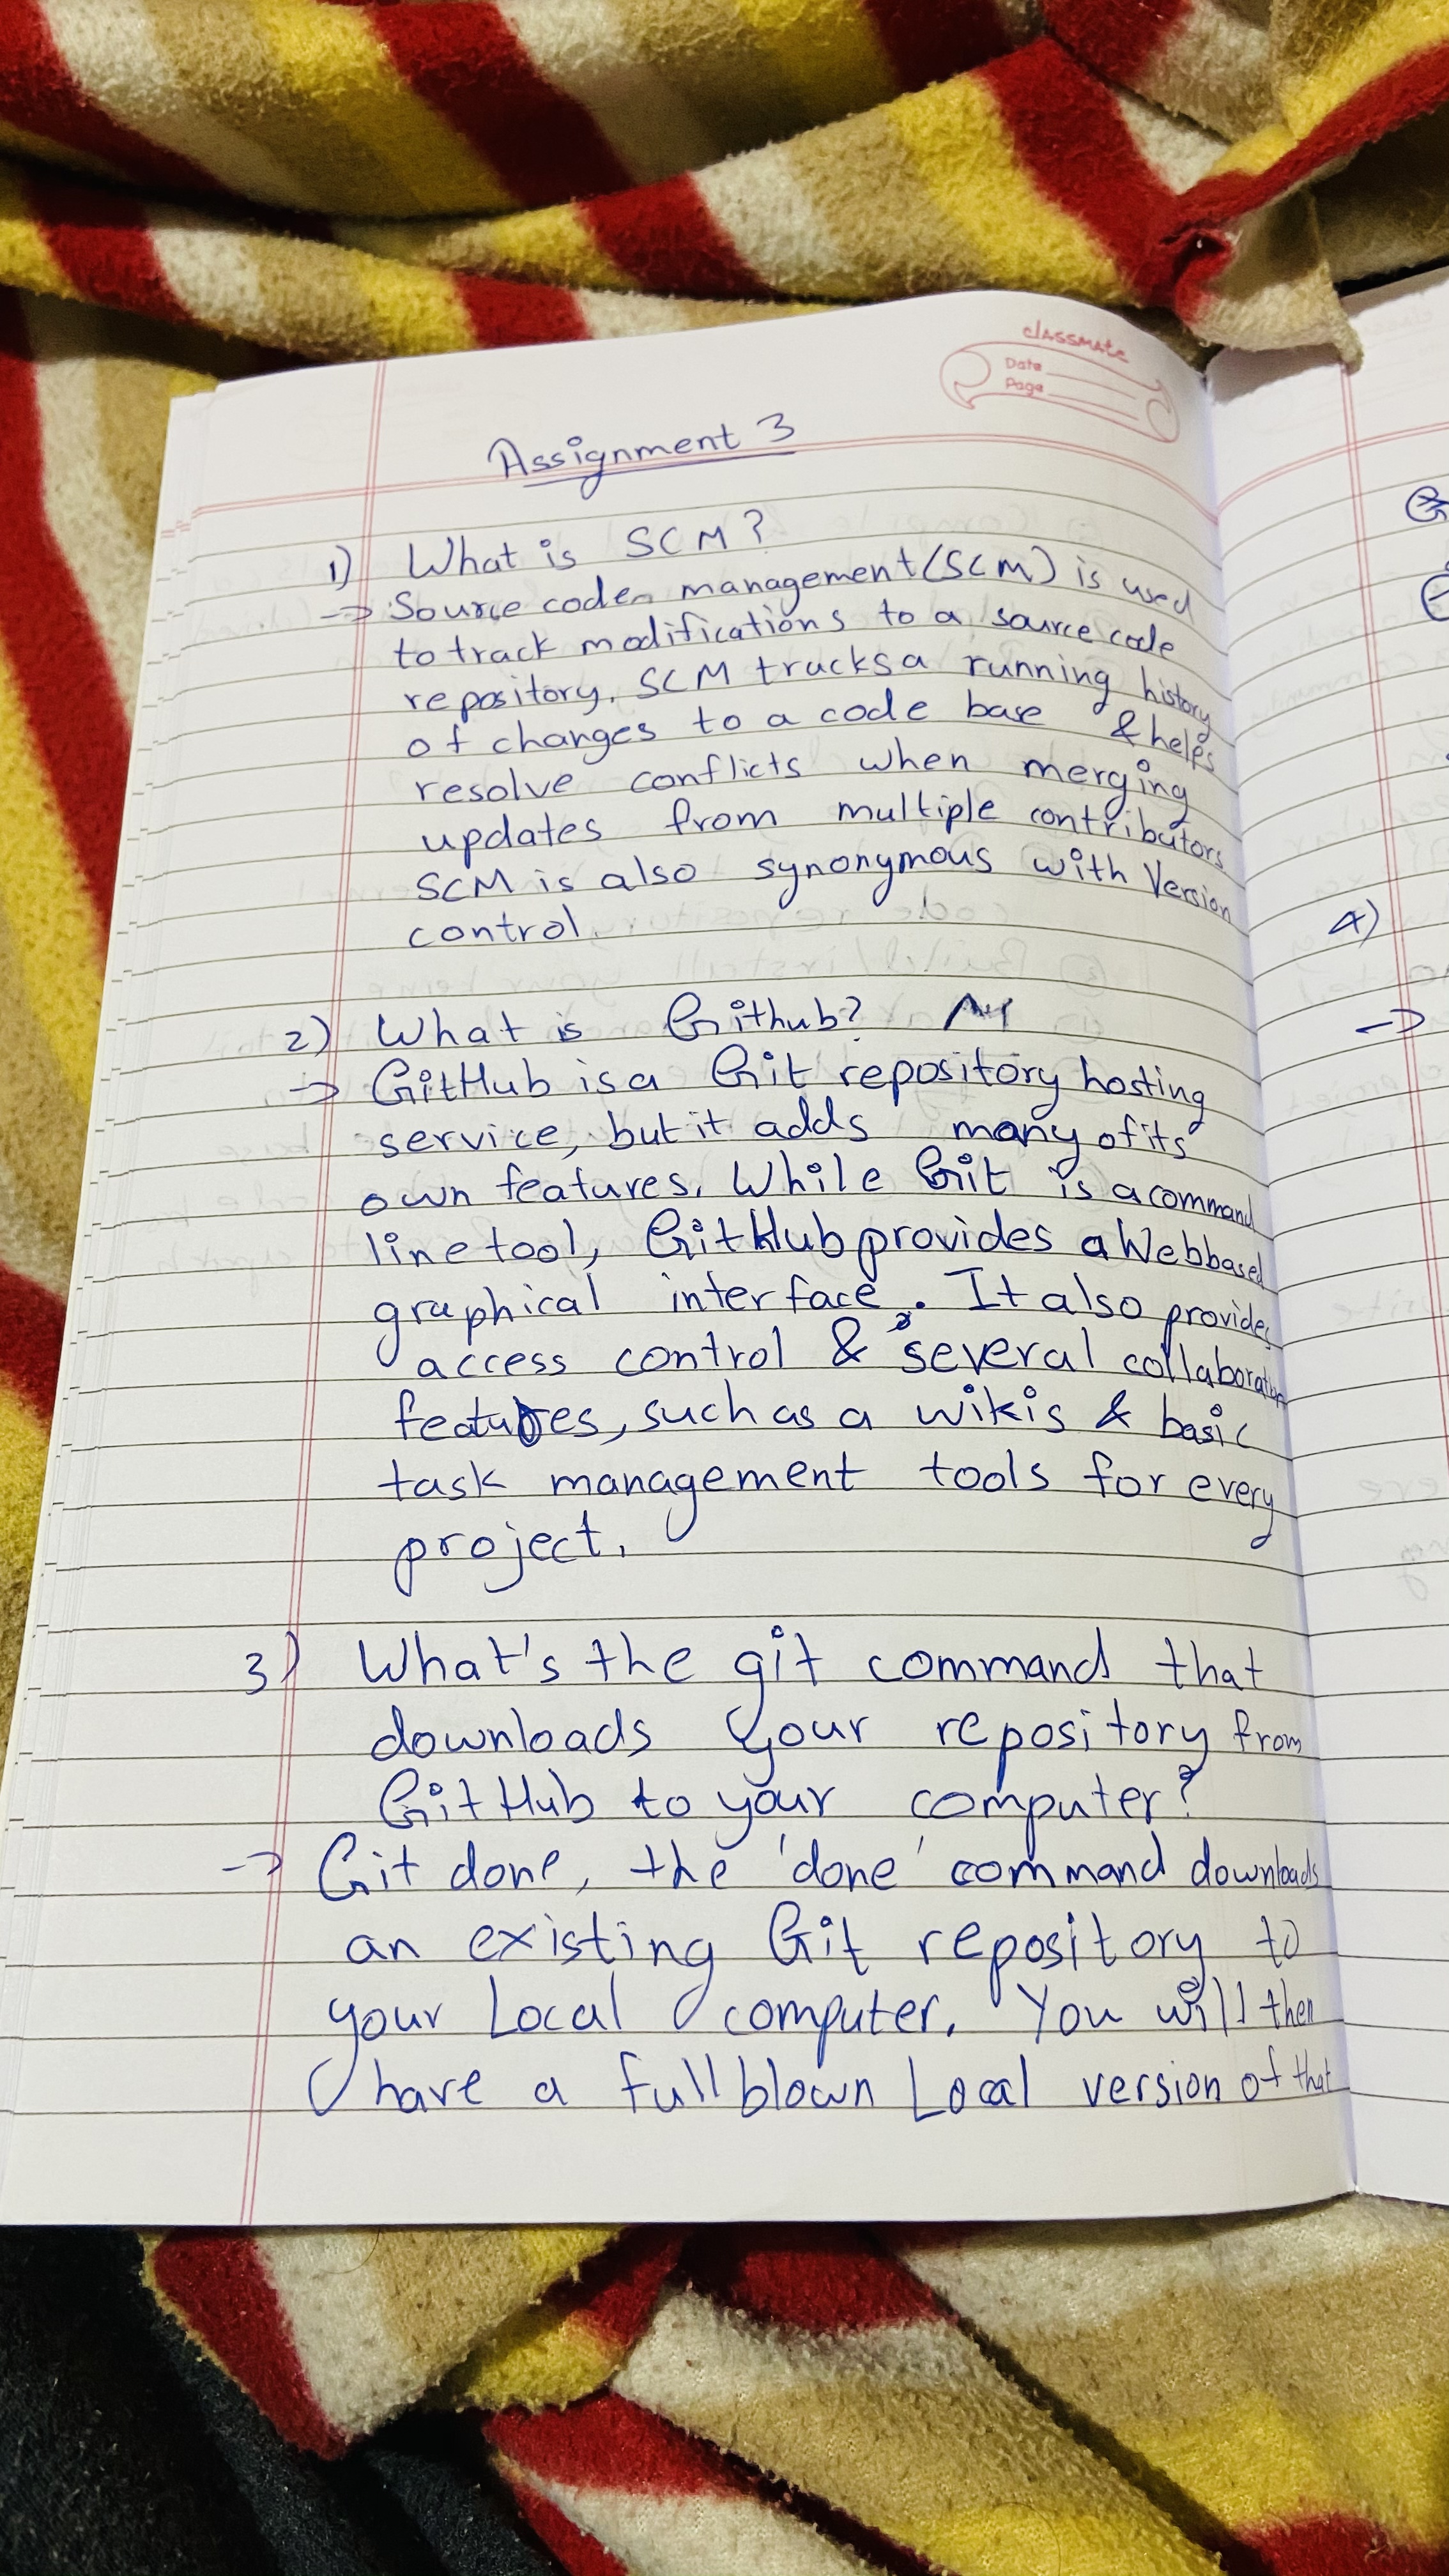 classmate
Date
Page
Assignment 3
1) What is SCM?
-> Source code management (SCM) is used
to track modifications to a source code
repository. SCM trucks a running history
of changes to a code base & helps
resolve conflicts when merging
updates from multiple contributors
SCM is also synonymous with Version
control.
2) What is Github?
-> GitHub is a Git repository hosting
service, but it adds many of its
own features. While Git is a command
line tool, GitHub provides a Webbased
graphical interface. It also provides
access control & several collaboration
features, such as a wikis & basic
task management tools for every
project.
3) What's the git command that
downloads your repository from
GitHub to your computer?
-> Git done, the 'done' command downloads
an existing Git repository to
your Local computer. You will then
have a full blown Local version of that
4)
->